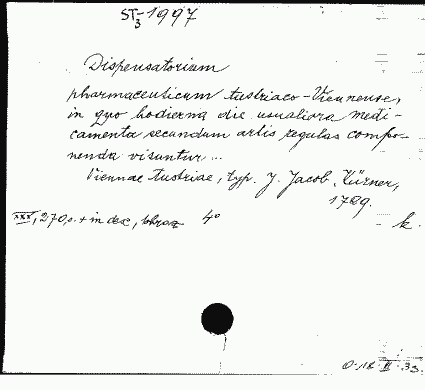 ST-1997
3
Dispensatorium
pharmaceuticum Austriaco-Viennense,
in quo hodierna die usualiora medi-
camenta secundum artis regulas compo-
nenda visuntur...
Viennae Austriae, typ. J. Jacob Kürner,
1729.
XXX, 270, s. + index, 4°
k.